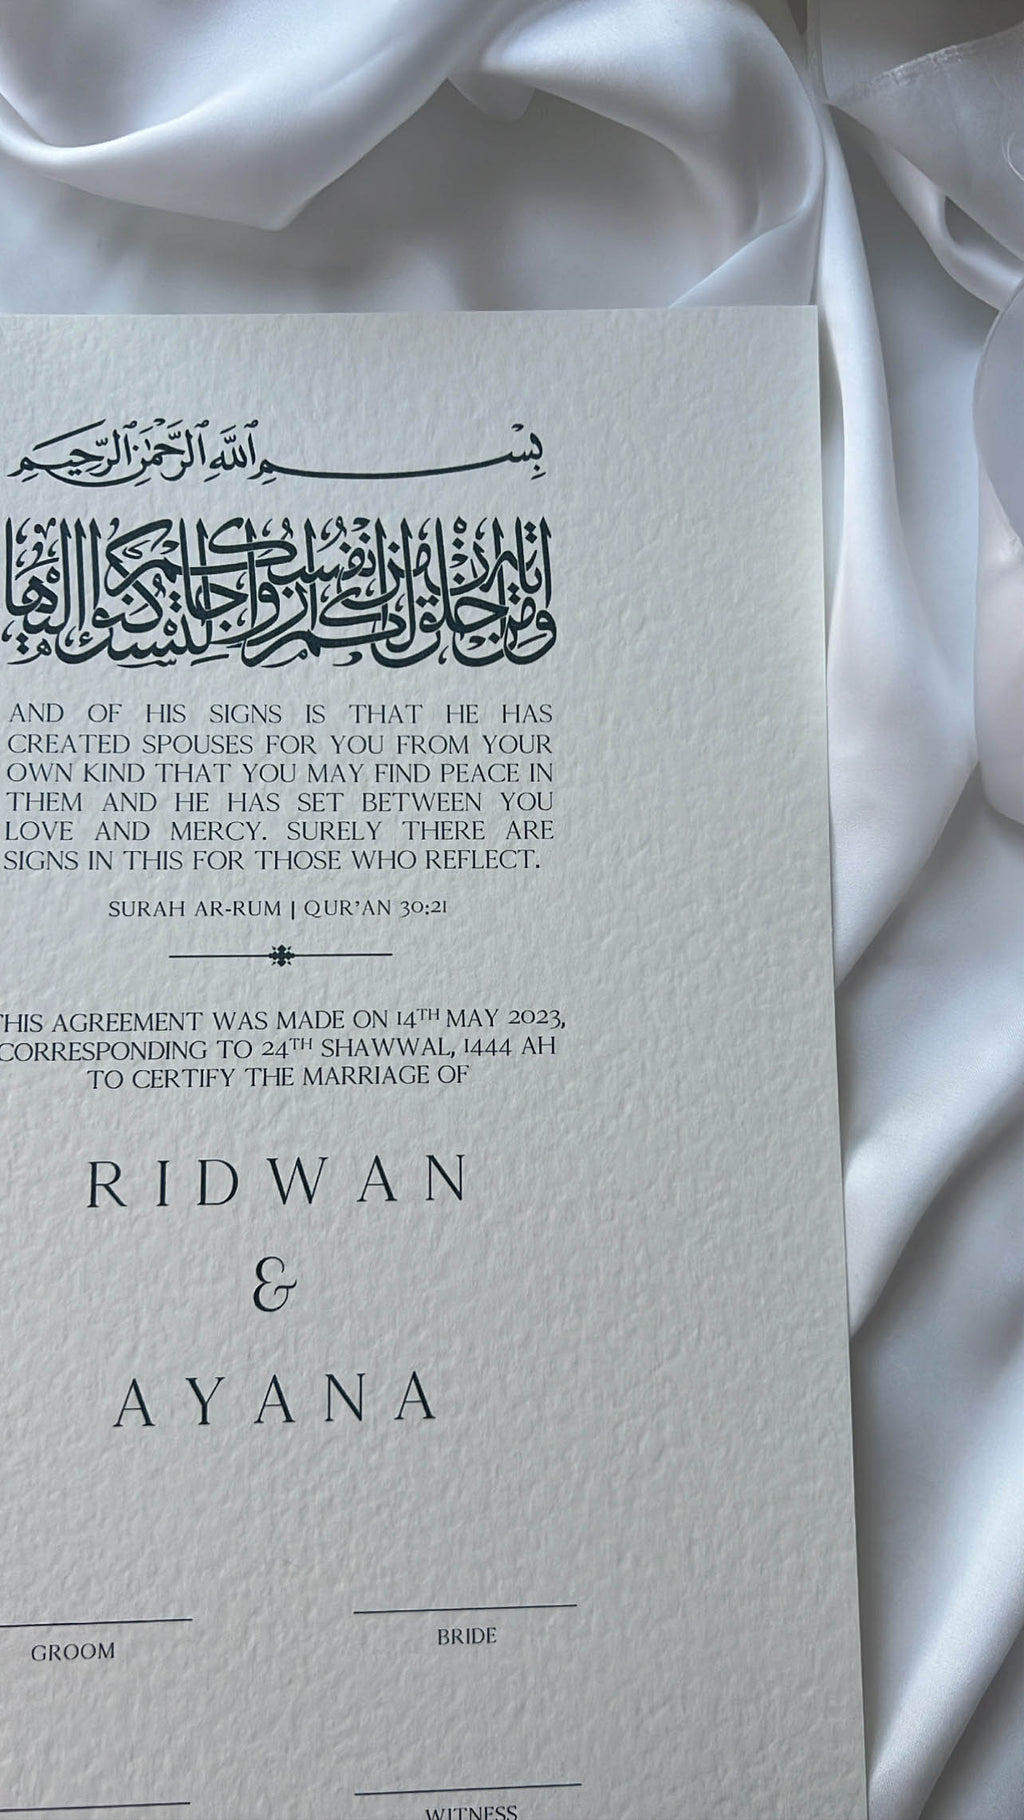 بِسْمِ ٱللَّهِ ٱلرَّحْمَٰنِ ٱلرَّحِيمِ
ومن اياته ان خلق لكم من انفسكم ازواجا لتسكنوا اليها
AND OF HIS SIGNS IS THAT HE HAS
CREATED SPOUSES FOR YOU FROM YOUR
OWN KIND THAT YOU MAY FIND PEACE IN
THEM AND HE HAS SET BETWEEN YOU
LOVE AND MERCY. SURELY THERE ARE
SIGNS IN THIS FOR THOSE WHO REFLECT.
SURAH AR-RUM | QUR'AN 30:21
THIS AGREEMENT WAS MADE ON 14TH MAY 2023,
CORRESPONDING TO 24TH SHAWWAL, 1444 AH
TO CERTIFY THE MARRIAGE OF
RIDWAN
&
AYANA
GROOM
BRIDE
WITNESS